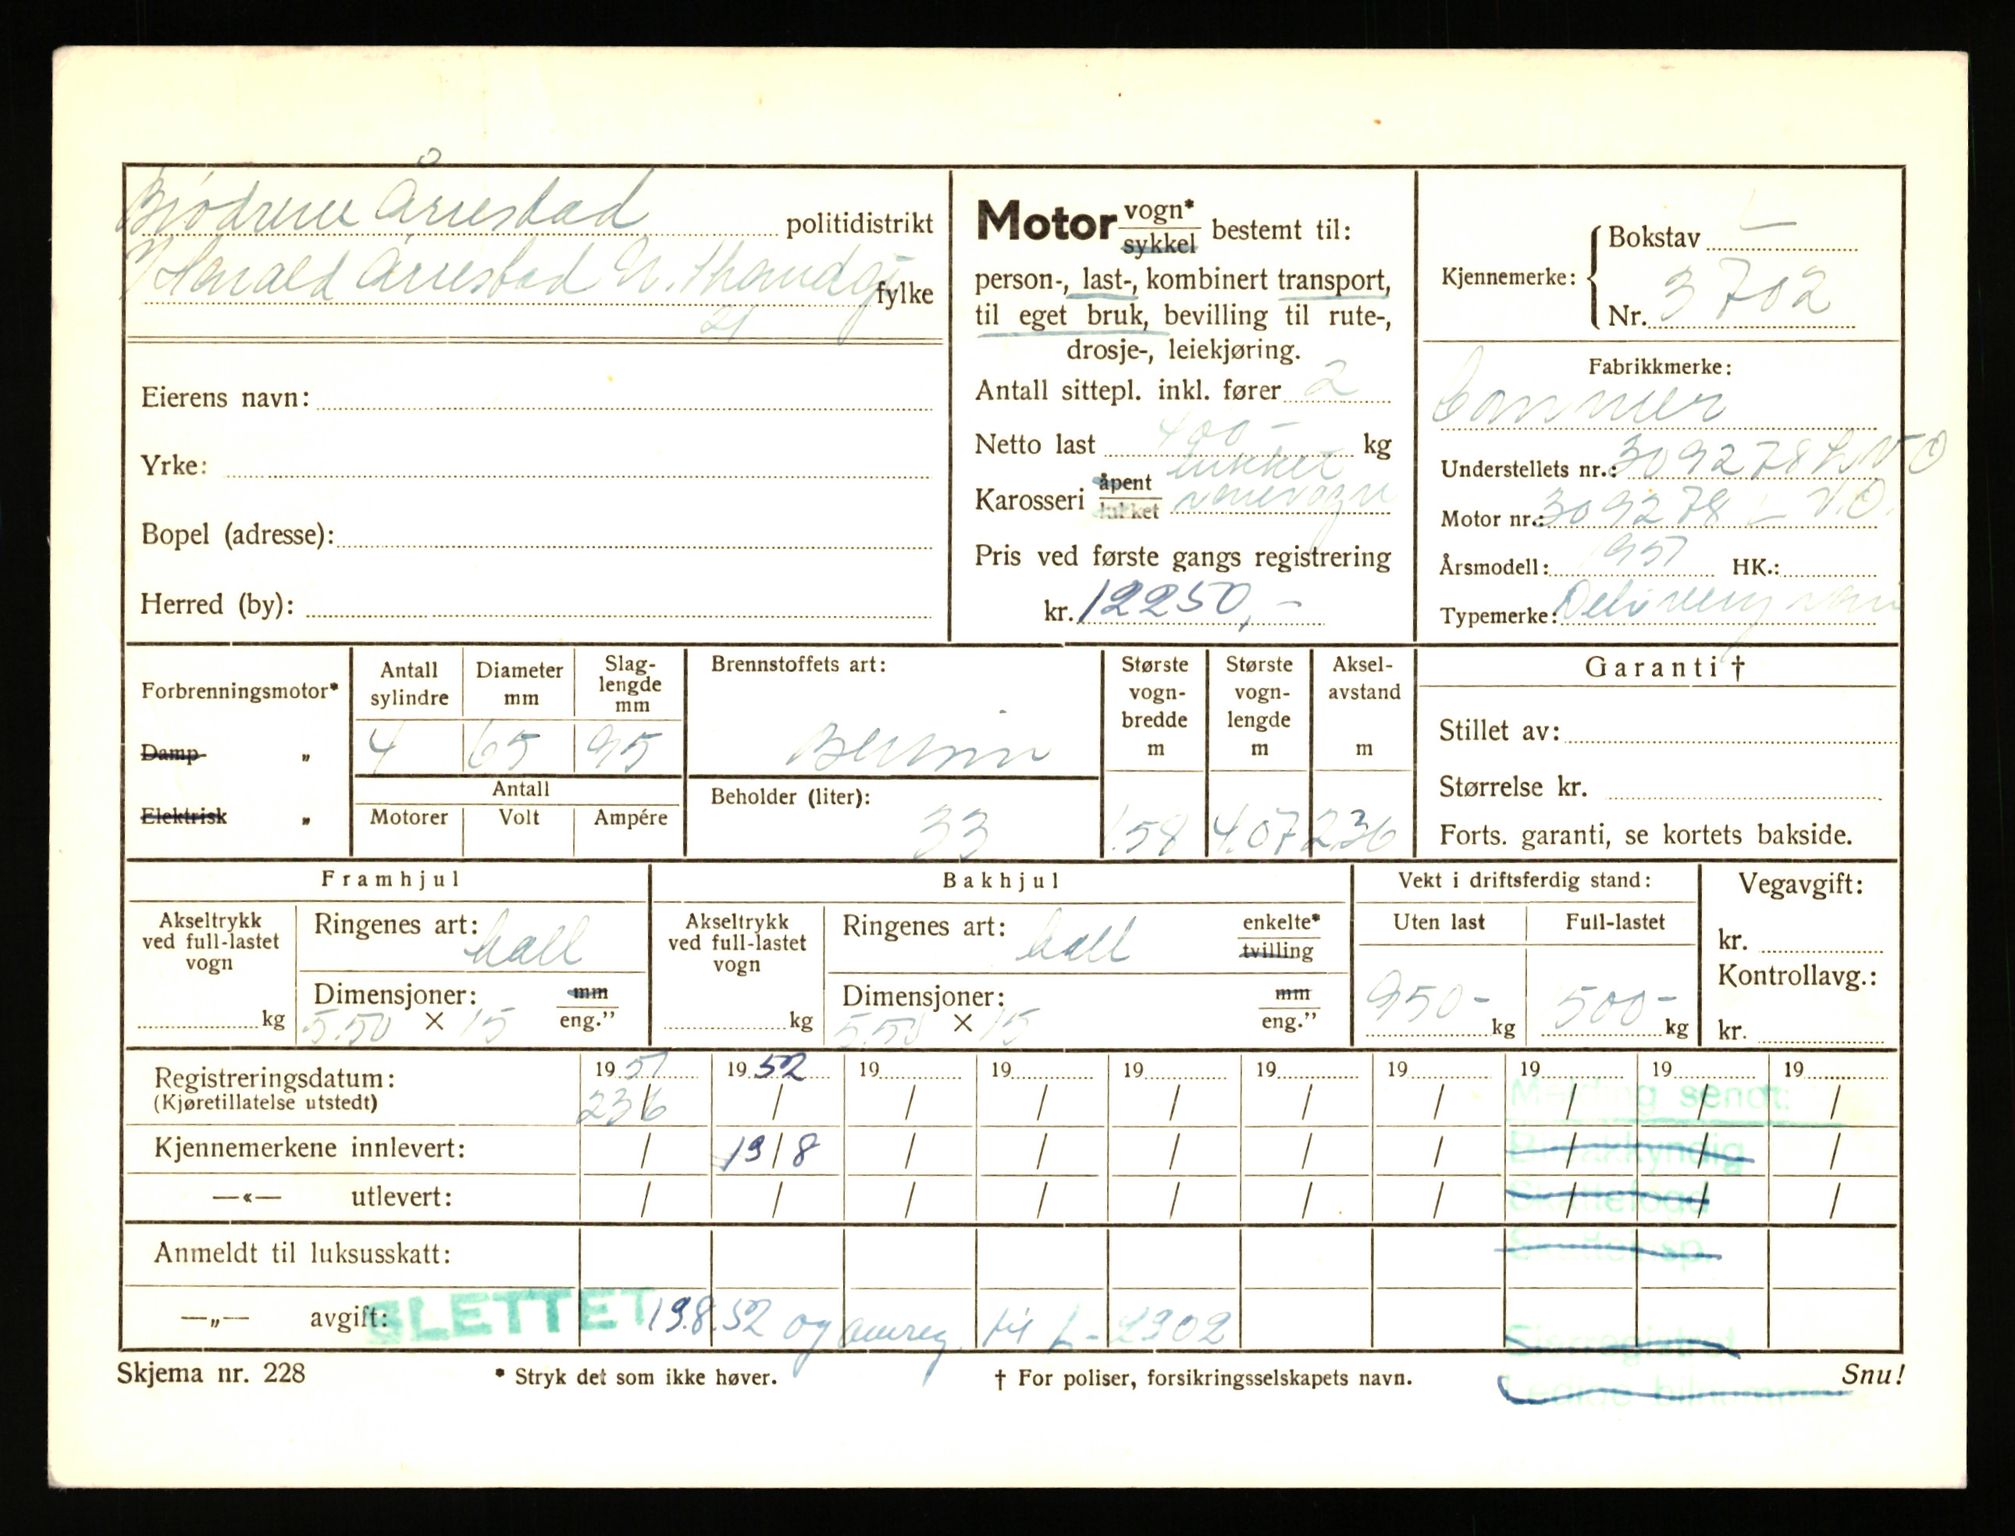 Brødrene Årrestad politidistrikt
V/ Harald Årrestad N. fylke
21
Eierens navn:
Yrke:
Bopel (adresse):
Herred (by):
Motor vogn* sykkel bestemt til:
person-, last-, kombinert transport,
til eget bruk, bevilling til rute-,
drosje-, leiekjøring.
Antall sittepl. inkl. fører 2
Netto last 400- kg
Karosseri åpent lukket lukket varevogn
Pris ved første gangs registrering
kr. 12250,-
Kjennemerke: Bokstav L
Nr. 3702
Fabrikkmerke:
Commer
Understellets nr.: 309278 L.V.O
Motor nr.: 309278 L V.O.
Årsmodell: 1951 HK.:
Typemerke: Delivery van
Forbrenningsmotor*
Damp „
Elektrisk „
Antall sylindre Diameter mm Slag-lengde mm
4 65 95
Antall
Motorer Volt Ampére
Brennstoffets art:
Bensin
Beholder (liter):
33
Største vogn-bredde m Største vogn-lengde m Aksel-avstand m
1.58 4.07 236
Garanti †
Stillet av:
Størrelse kr.
Forts. garanti, se kortets bakside.
Framhjul
Akseltrykk ved full-lastet vogn
kg
Ringenes art:
Dimensjoner: mm
5.50 × 15 eng.”
Bakhjul
Akseltrykk ved full-lastet vogn
kg
Ringenes art: enkelte* tvilling
Dimensjoner: mm
5.50 × 15 eng.”
Vekt i driftsferdig stand:
Uten last Full-lastet
950- kg 500- kg
Vegavgift:
kr.
Kontrollavg.:
kr.
Registreringsdatum: 1951 1952 19 19 19 19 19 19 19 19
(Kjøretillatelse utstedt) 23/6 / / / / / / / / /
Melding sendt:
Kjennemerkene innlevert: / 19/8 / / / / / / / /
—«— utlevert: / / / / / / / / / /
Anmeldt til luksusskatt:
—„— avgift: SLETTET 19.8.52 og omreg. til L-2302
Skjema nr. 228 * Stryk det som ikke høver. † For poliser, forsikringsselskapets navn. Snu!